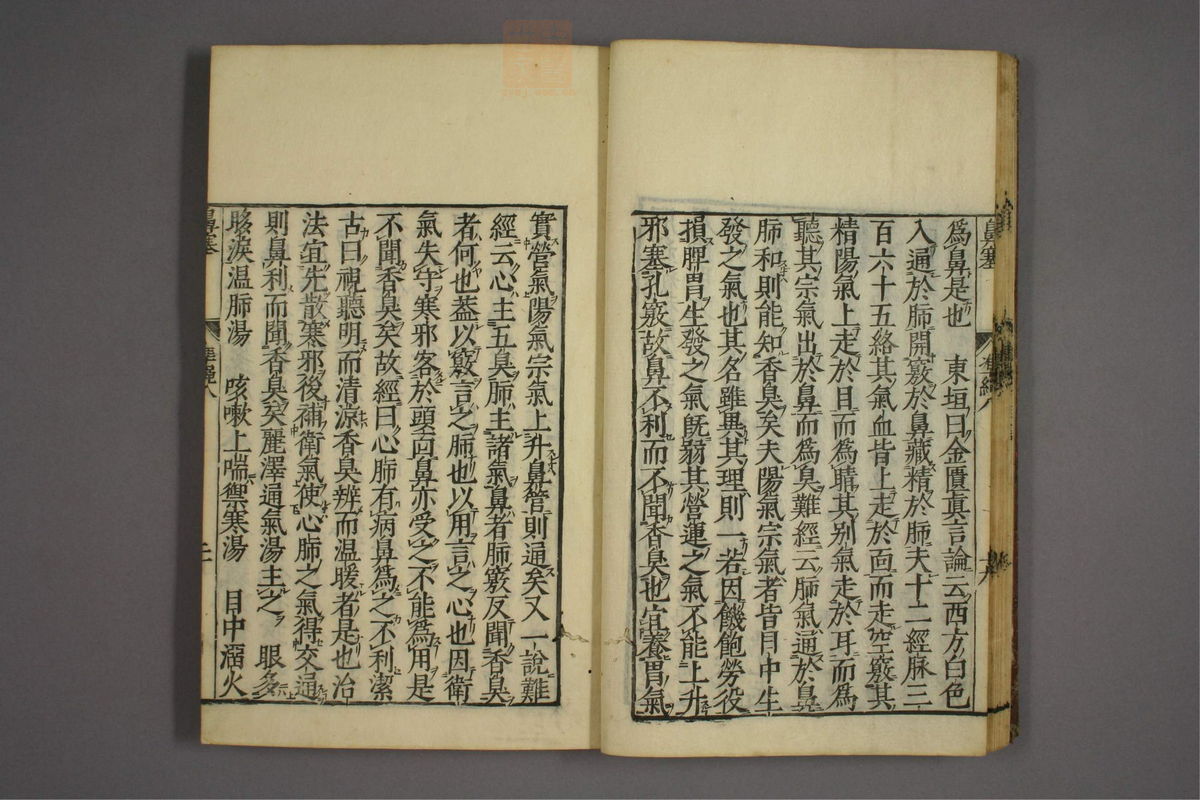 爲鼻是也　東垣曰金匱眞言論云西方白色
入通於肺開竅於鼻藏精於肺夫十二經脉三
百六十五絡其氣血皆上走於面而走空竅其
精陽氣上走於目而爲睛其別氣走於耳而爲
聽其宗氣出於鼻而爲臭難經云肺氣通於鼻
肺和則能知香臭矣夫陽氣宗氣者皆目中生
發之氣也其名雖異其理則一若因饑飽勞役
損脾胃生發之氣旣弱其營運之氣不能上升
邪塞孔竅故鼻不利而不聞香臭也宜養胃氣
實營氣陽氣宗氣上升鼻管則通矣又一說難
經云心主五臭肺主諸氣鼻者肺竅反聞香臭
者何也蓋以竅言之肺也以用言之心也因衛
氣失守寒邪客於頭面鼻亦受之不能爲用是
不聞香臭矣故經曰心肺有病鼻爲之不利潔
古曰視聽明而清涼香臭辨而温暖者是也治
法宜先散寒邪後補衛氣使心肺之氣得交通
則鼻利而聞香臭矣麗澤通氣湯主之　眼多
眵淚温肺湯　咳嗽上喘禦寒湯　目中溜火
鼻塞